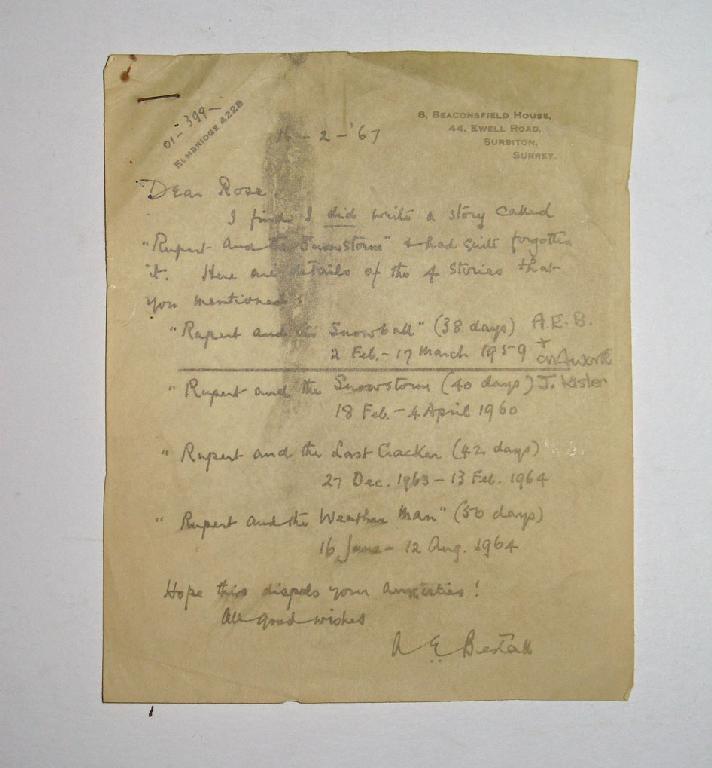 01-399-
ELMBRIDGE 4228
8, BEACONSFIELD HOUSE,
44, EWELL ROAD,
SURBITON,
SURREY.
-2-'67
Dear Rose,
I find I did write a story called
"Rupert and the Snowstorm" & had quite forgotten
it. Here are details of the 4 stories that
you mentioned:
"Rupert and the Snowball" (38 days) A.E.B.
2 Feb. - 17 March 1959 +
"Rupert and the Snowstorm (40 days)
18 Feb. - 4 April 1960
"Rupert and the Last Cracker (42 days)
27 Dec. 1963 - 13 Feb. 1964
"Rupert and the Weather Man" (50 days)
16 June - 12 Aug. 1964
Hope this dispels your anxieties!
All good wishes
A E Bestall